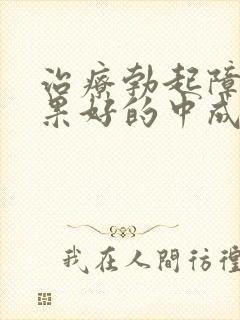 治療勃起障
果好的中成
我在人間彷徨